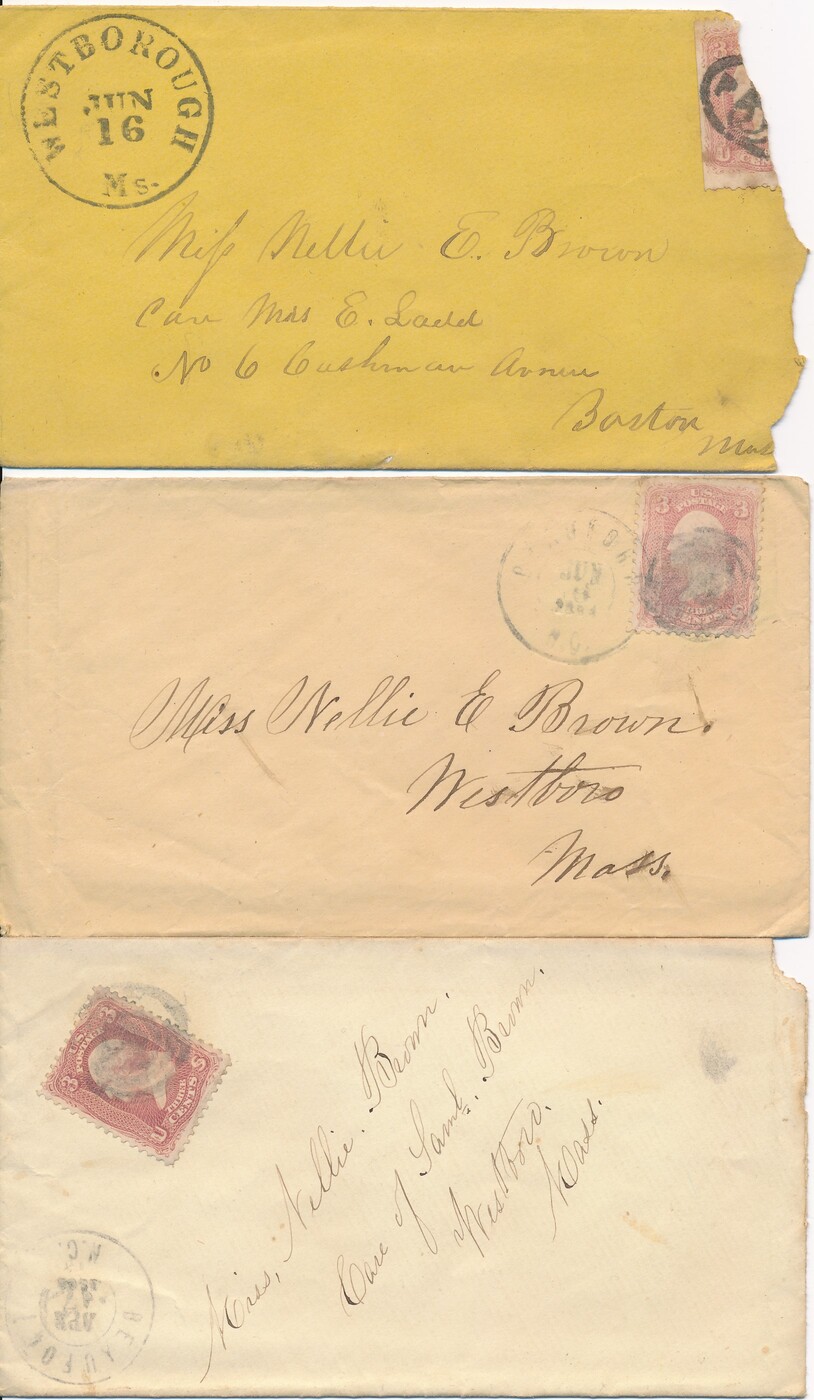 WESTBOROUGH
JUN
16
Ms.
Miss Nellie E. Brown
Care Mrs E. Ladd
No 6 Cushman Avenue
Boston
Mass
U.S.
POSTAGE
3 3
CENTS
Miss Nellie E Brown.
Westboro
Mass.
U.S.
POSTAGE
3 3
THREE
CENTS
U S
Miss, Nellie. Brown.
Care of Saml. Brown.
Westboro.
Mass.
BEAUFORT
APR
N.C.